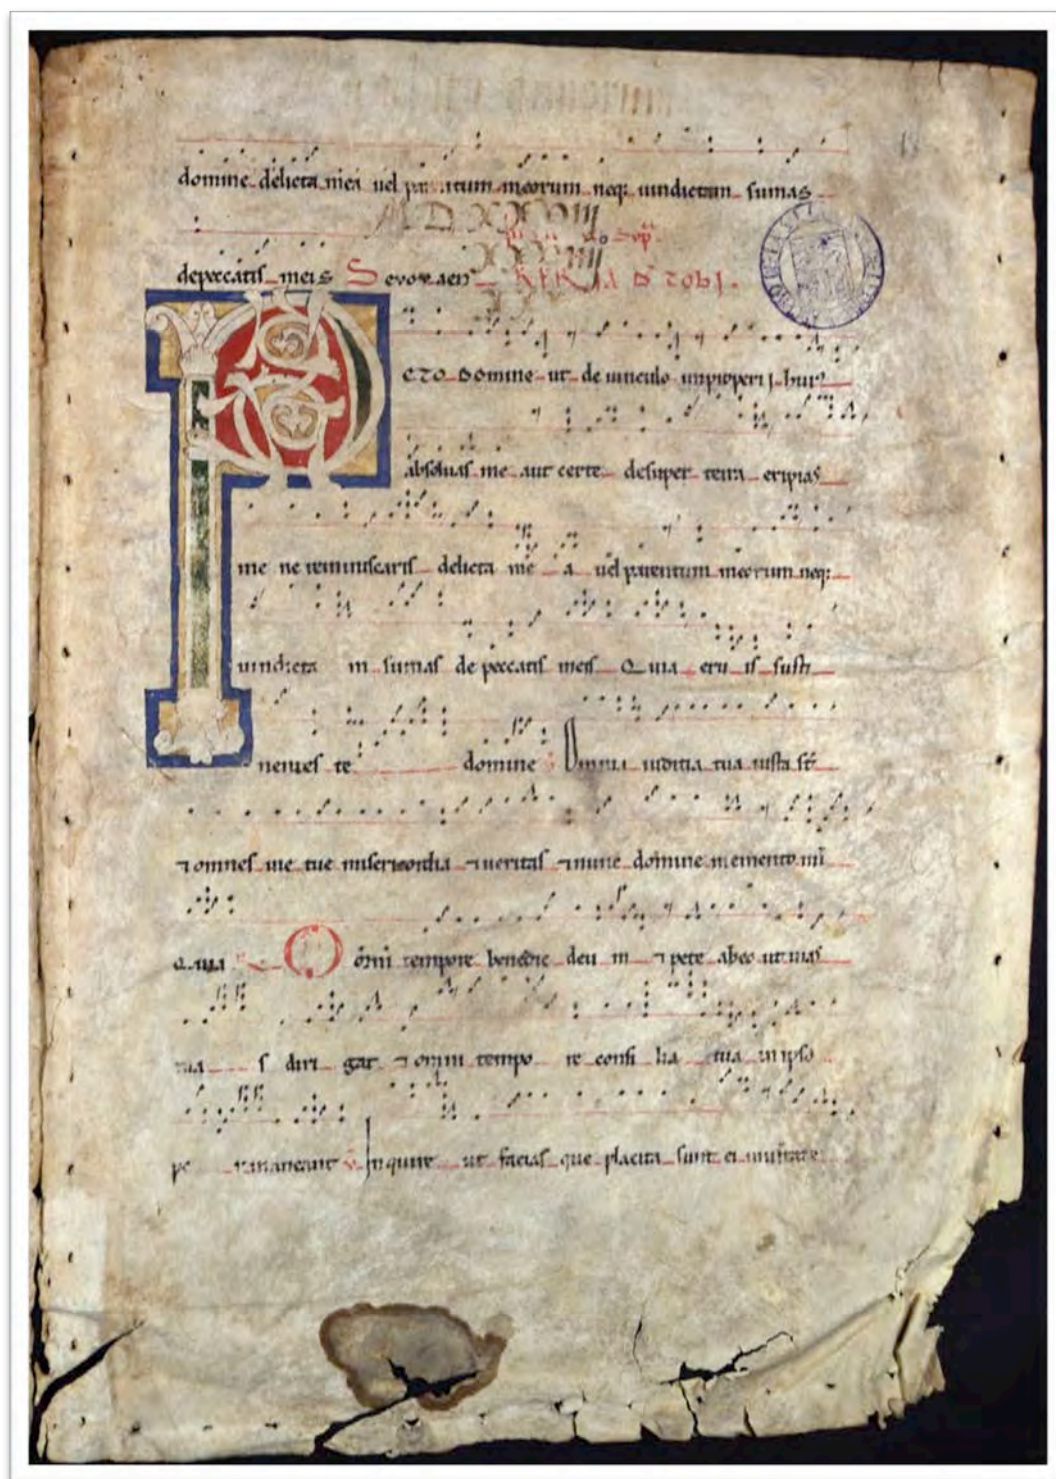 domine delicta mea uel parentum meorum neq; uindictam sumas
MDXXXVIIII
de peccatis meis Seuouaen R DE TOBI.
PETO DOmine ut de uinculo inproperii hui9
absoluas me aut certe desuper terra eripias
me ne reminiscaris delicta me a uel parentum meorum neq;
uindicta m sumas de peccatis meis Quia eru is susti
nentes te domine Omnia iudicia tua iusta st
⁊ omnes uie tue misericordia ⁊ ueritas ⁊ nunc domine memento mi
Quia Omi tempore benedic deu m ⁊ pete ab eo ut uias
tua s diri gat ⁊ omni tempo re consi lia tua in ipso
pe rmaneant Inquire ut facias que placita sunt ei in ueritate